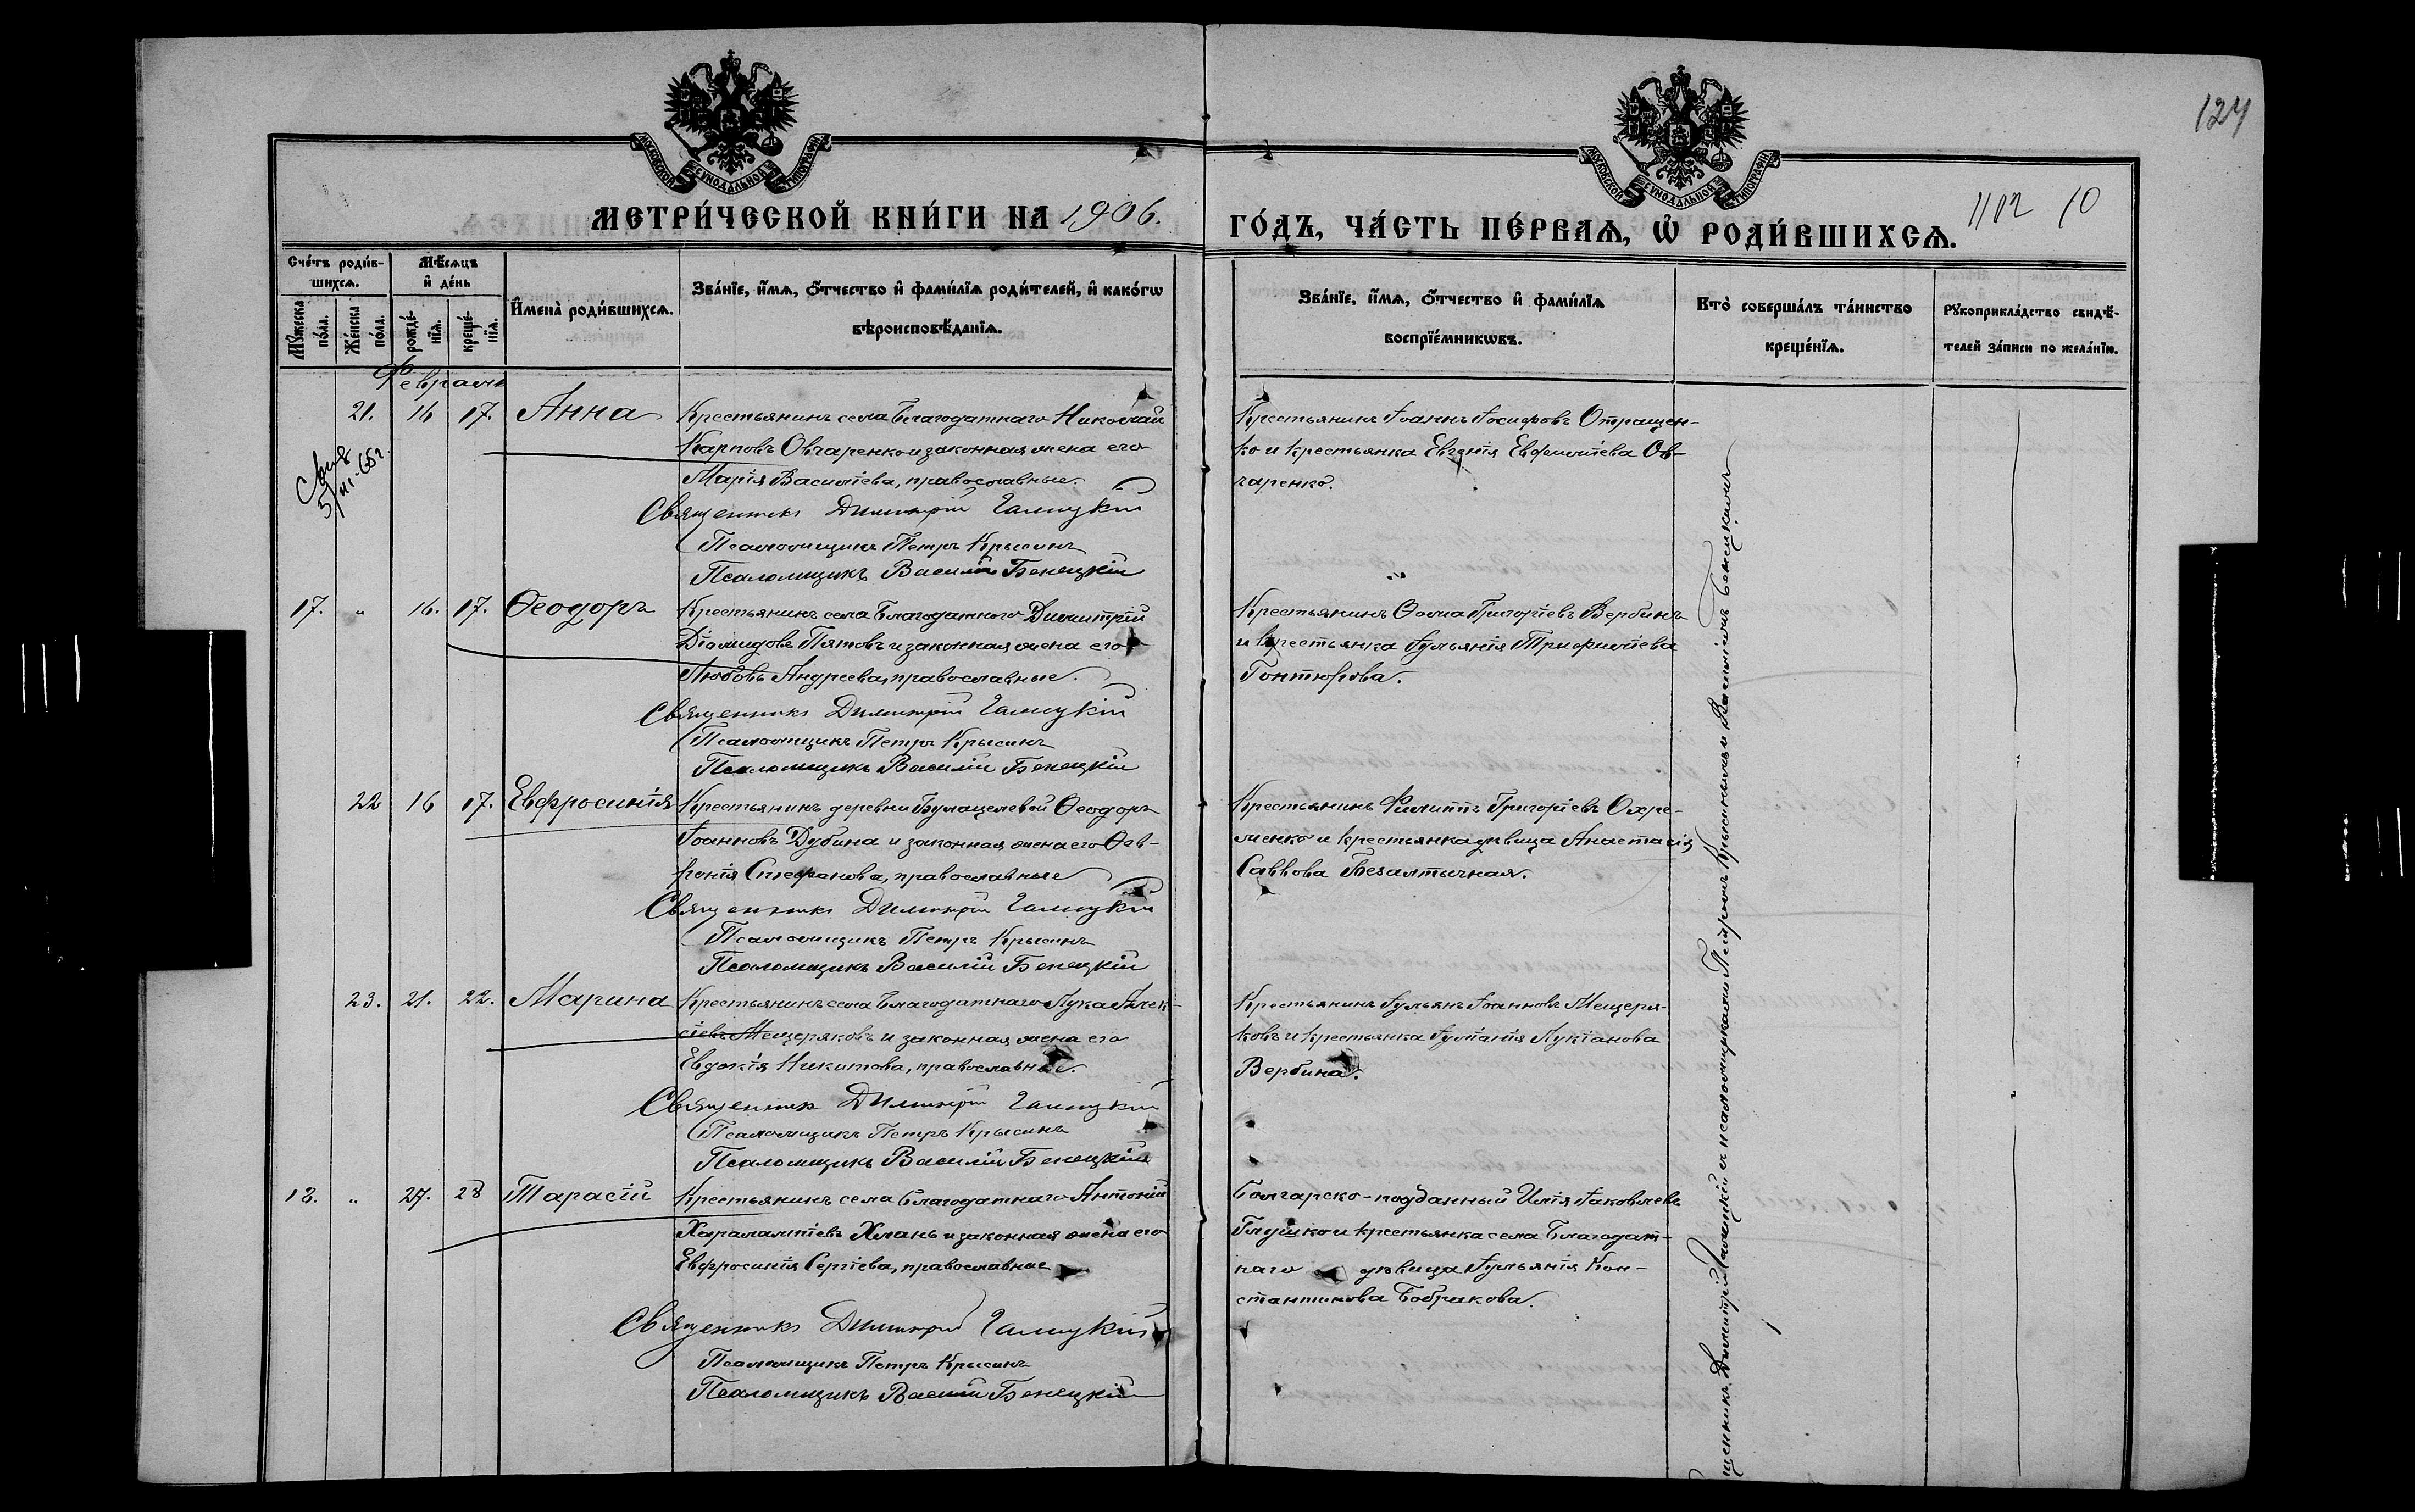 124
МОСКОВСКОЙ СѴНОДАЛЬНОЙ ТИПОГРАФІИ
МОСКОВСКОЙ СѴНОДАЛЬНОЙ ТИПОГРАФІИ
МЕТРИ́ЧЕСКОЙ КНИ́ГИ НА 1906.
ГО́ДЪ, ЧА́СТЬ ПЕ́РВАѦ, Ѡ҆ РОДИ́ВШИХСѦ.
1102 10
Сче́тъ роди́в-
шихсѧ.
Мѣ́сѧцъ
и҆ де́нь
Мꙋ́жеска
по́ла.
Же́нска
по́ла.
рожде́-
нїѧ.
креще́-
нїѧ.
И҆мена̀ роди́вшихсѧ.
Зва́нїе, и҆́мѧ, ѻ҆́тчество и҆ фами́лїѧ роди́телей, и҆ како́гѡ
вѣроисповѣ́данїѧ.
Зва́нїе, и҆́мѧ, ѻ҆́тчество и҆ фами́лїѧ
воспрїе́мникѡвъ.
Кто̀ соверша́лъ та́инство
креще́нїѧ.
Рꙋкоприкла́дство свидѣ́-
телей за́писи по жела́нїю.
Февраль
21. 16 17. Анна
Крестьянинъ села Благодатнаго Николай
Карповъ Овчаренко и законная жена его
Марія Василіева, православные.
Священникъ Димитрій Галицкій
Псаломщикъ Петръ Крысинъ
Псаломщикъ Василій Бенецкій
Крестьянинъ Іоаннъ Іосифовъ Отращен-
ко и крестьянка Евгенія Евфиміева Ов-
чаренко.
17. „ 16. 17. Ѳеодоръ
Крестьянинъ села Благодатнаго Димитрій
Діомидовъ Пятовъ и законная жена его
Любовь Андреева, православные.
Священникъ Димитрій Галицкій
Псаломщикъ Петръ Крысинъ
Псаломщикъ Василій Бенецкій
Крестьянинъ Ѳома Григоріевъ Вербинъ
и крестьянка Іуліанія Трифиліева
Гонтюрова.
22 16 17. Евфросинія
Крестьянинъ деревни Булацелевой Ѳеодоръ
Іоанновъ Дубина и законная жена его Фев-
ронія Стефанова, православные
Священникъ Димитрій Галицкій
Псаломщикъ Петръ Крысинъ
Псаломщикъ Василій Бенецкій
Крестьянинъ Филиппъ Григоріевъ Охре-
менко и крестьянка дѣвица Анастасія
Саввова Безалтычная.
23. 21. 22. Марина
Крестьянинъ села Благодатнаго Лука Алек-
сіевъ Мещеряковъ и законная жена его
Евдокія Никитова, православные.
Священникъ Димитрій Галицкій
Псаломщикъ Петръ Крысинъ
Псаломщикъ Василій Бенецкій
Крестьянинъ Іульянъ Іоанновъ Мещеря-
ковъ и крестьянка Іуліанія Лукіанова
Вербина.
18. „ 27. 28 Тарасій
Крестьянинъ села Благодатнаго Антоній
Харалампіевъ Хмань и законная жена его
Евфросинія Сергіева, православные
Священникъ Димитрій Галицкій
Псаломщикъ Петръ Крысинъ
Псаломщикъ Василій Бенецкій
Болгарско-подданный Илія Іаковлевъ
Глушко и крестьянка села Благодат-
наго дѣвица Іульянія Кон-
стантинова Бобракова.
щенникъ Димитрій Галицкій съ псаломщиками Петромъ Крысинымъ и Василіемъ Бенецкимъ